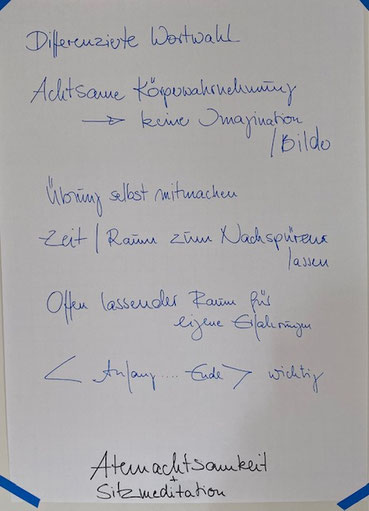 Differenzierte Wortwahl
Achtsame Körperwahrnehmung
→ keine Imagination
/Bilder
Übung selbst mitmachen
Zeit / Raum zum Nachspüren
lassen
Offen lassender Raum für
eigene Erfahrungen
< Anfang .... Ende > wichtig
Atemachtsamkeit
+
Sitzmeditation